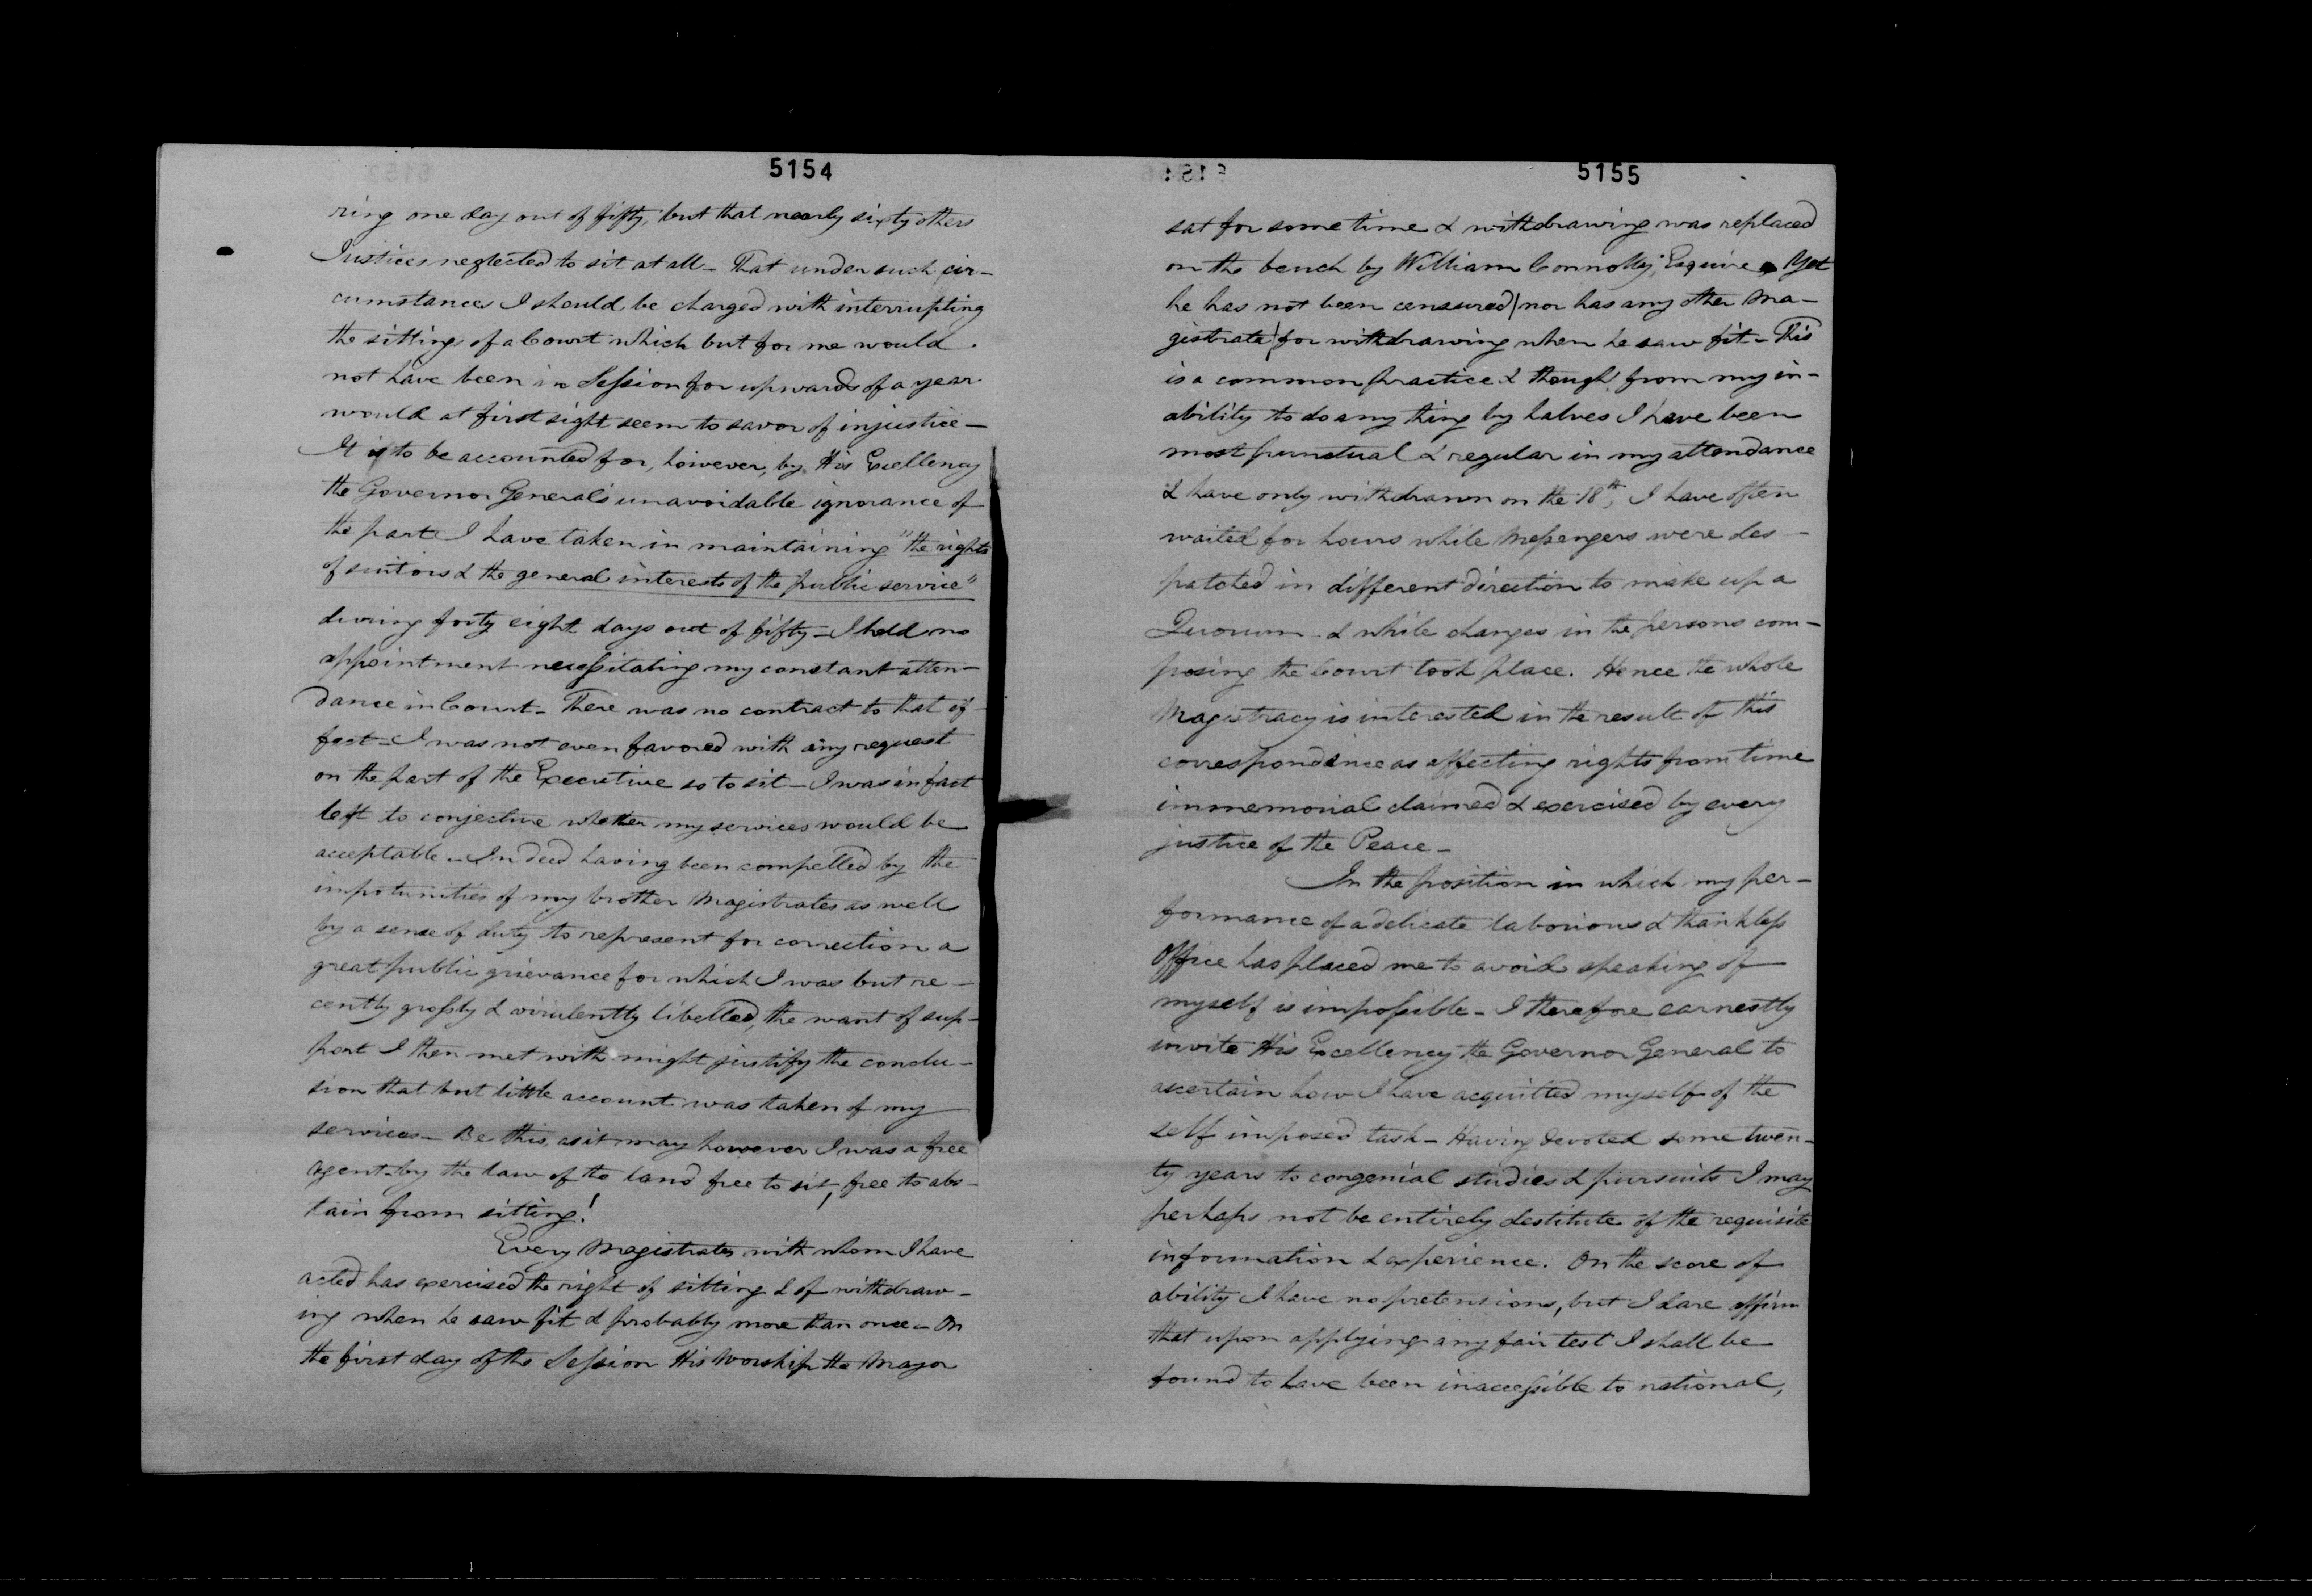 5154
ring one day out of fifty, but that nearly sixty others
Justices neglected to sit at all - That under such cir-
cumstances I should be charged with interrupting
the sittings of a Court which but for me would
not have been in Session for upwards of a year
would at first sight seem to savor of injustice -
It is to be accounted for, however, by His Excellency
the Governor General's unavoidable ignorance of
the part I have taken in maintaining "the rights
of suitors & the general interests of the public service"
during forty eight days out of fifty - I held no
appointment necessitating my constant atten-
dance in Court - There was no contract to that ef-
fect - I was not even favored with any request
on the part of the Executive so to sit - I was in fact
left to conjecture whether my services would be
acceptable - Indeed having been compelled by the
impotunities of my brother Magistrates as well
by a sense of duty to represent for correction a
great public grievance for which I was but re-
cently grossly & virulently libelled, the want of sup-
port I then met with might justify the conclu-
sion that but little account was taken of my
services - Be this, as it may however I was a free
agent - by the law of the land free to sit, free to abs-
tain from sitting!
Every Magistrates with whom I have
acted has exercised the right of sitting & of withdraw-
ing when he saw fit & probably more than once - On
the first day of the Session His Worship the Mayor
5155
sat for some time & withdrawing was replaced
on the bench by William Connolly, Esquire Yet
he has not been censured (nor has any other Ma-
gistrate) for withdrawing when he saw fit - This
is a common practice & though from my in-
ability to do any thing by halves I have been
most punctual & regular in my attendance
& have only withdrawn on the 18th, I have often
waited for hours while Messengers were des-
patched in different direction to make up a
Quorum & while changes in the persons com-
posing the Court took place. Hence the whole
Magistracy is interested in the result of this
correspondence as affecting rights from time
immemorial claimed & exercised by every
justice of the Peace -
In the position in which my per-
formance of a delicate laborious & thankless
Office has placed me to avoid speaking of
myself is impossible - I therefore earnestly
invite His Excellency the Governor General to
ascertain how I have acquitted myself of the
self imposed task - Having devoted some twen-
ty years to congenial studies & pursuits I may
perhaps not be entirely destitute of the requisite
information & experience. On the score of
ability I have no pretensions, but I dare affirm
that upon applying any fair test I shall be
found to have been inaccessible to national,